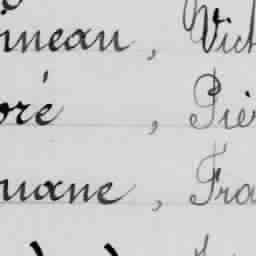 nneau, Vict
oré, Pier
uane, Fra